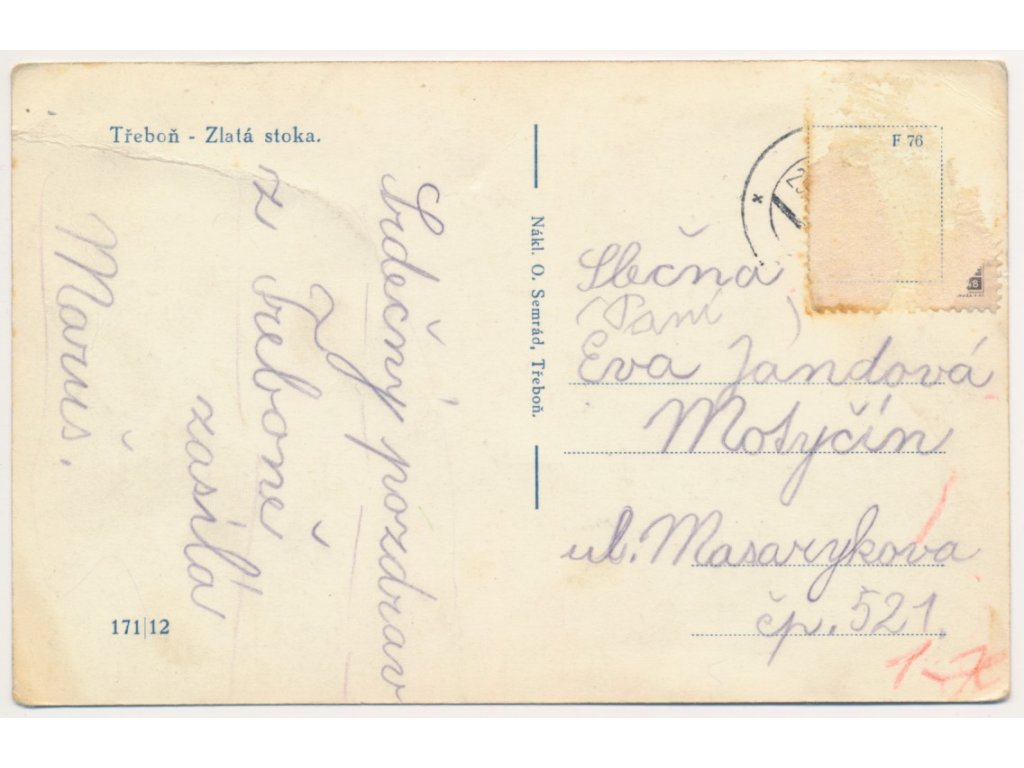 Třeboň - Zlatá stoka.
Srdečný pozdrav
z Třeboně
zasílá
Maruš.
171|12
Nákl. O. Semrád, Třeboň.
F 76
Slečna
(Paní )
Eva Jandová
Motyčín
ul. Masarykova
čp. 521.